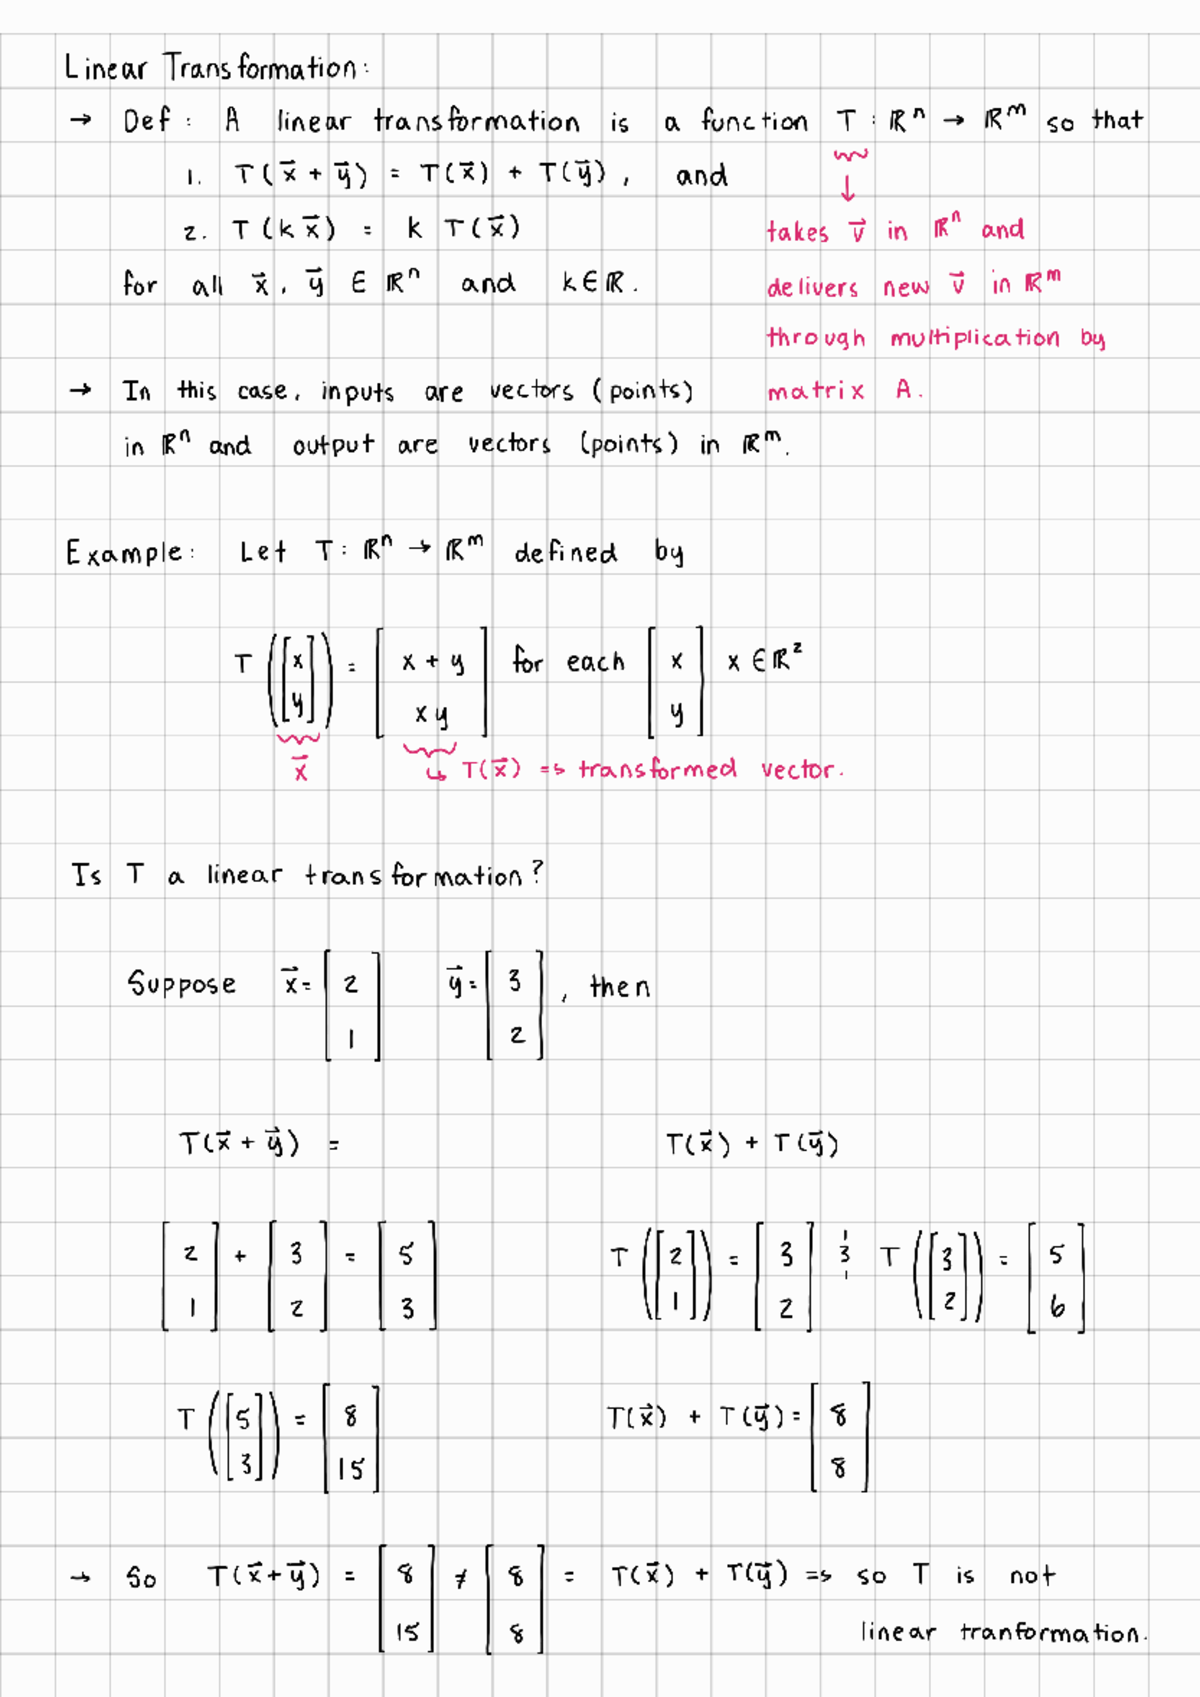 Linear Transformation:
→ Def: A linear transformation is a function T : ℝⁿ → ℝᵐ so that
1. T(x⃗ + y⃗) = T(x⃗) + T(y⃗), and
2. T(kx⃗) = k T(x⃗)
for all x⃗, y⃗ ∈ ℝⁿ and k∈ℝ.
↓
takes v⃗ in ℝⁿ and
delivers new v⃗ in ℝᵐ
through multiplication by
matrix A.
→ In this case, inputs are vectors (points)
in ℝⁿ and output are vectors (points) in ℝᵐ.
Example: Let T: ℝⁿ → ℝᵐ defined by
T([x y]) = [x + y xy] for each [x y] x ∈ℝ²
x⃗
↳ T(x⃗) => transformed vector.
Is T a linear transformation?
Suppose x⃗ = [2 1] y⃗ = [3 2], then
T(x⃗ + y⃗) =
[2 1] + [3 2] = [5 3]
T([5 3]) = [8 15]
T(x⃗) + T(y⃗)
T([2 1]) = [3 2] & T([3 2]) = [5 6]
T(x⃗) + T(y⃗) = [8 8]
→ So T(x⃗+y⃗) = [8 15] ≠ [8 8] = T(x⃗) + T(y⃗) => so T is not
linear tranformation.